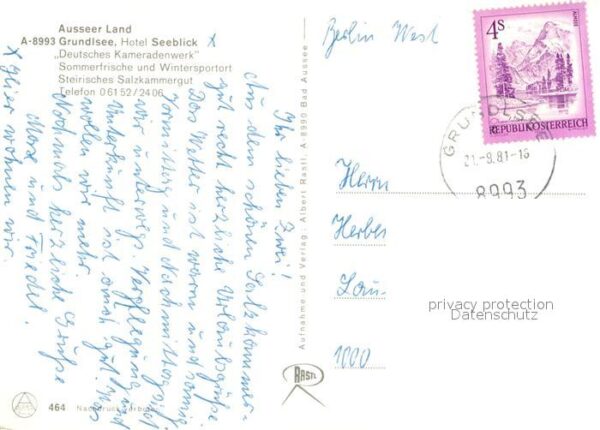 Ausseer Land
A-8993 Grundlsee, Hotel Seeblick X
„Deutsches Kameradenwerk"
Sommerfrische und Wintersportort
Steirisches Salzkammergut
Telefon 0 61 52 / 24 06
Ihr lieben Zwei!
Aus dem schönen Salzkammer-
gut recht herzliche Urlaubsgrüße.
Das Wetter ist warm und sonnig
Vormittag und Nachmittag sind
wir unterwegs. Verpflegung und
Unterkunft ist auch gut. Was
wollen wir mehr.
Nochmals herzliche Grüße
Max und Friedel.
X Hier wohnen wir.
464 Nachdruck verboten
Aufnahme und Verlag: Albert Rastl, A-8990 Bad Aussee
RASTL
Berlin West
4S
REPUBLIK ÖSTERREICH
GRUNDLSEE
21.-9.81-16
8993
Herrn
Lau-
1000
privacy protection
Datenschutz